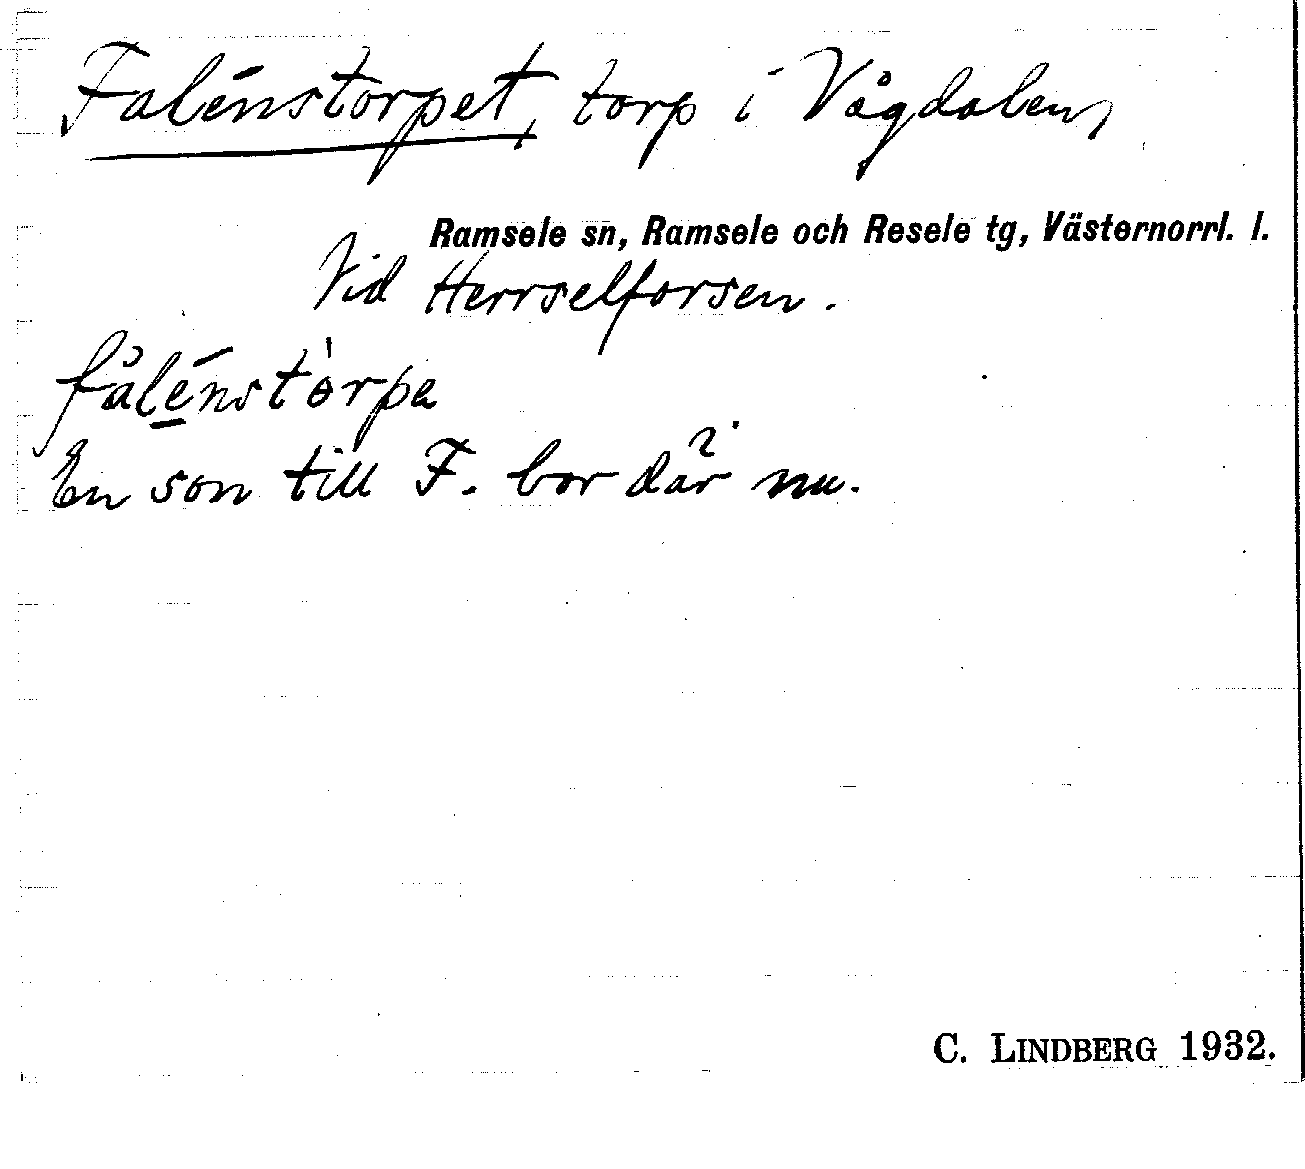 Falénstorpet, torp i Vågdalen,
Ramsele sn, Ramsele och Resele tg, Västernorrl. l.
Vid Herrselforsen.
fàlénstòrpa
En son till F. bor där nu.
C. LINDBERG 1932.